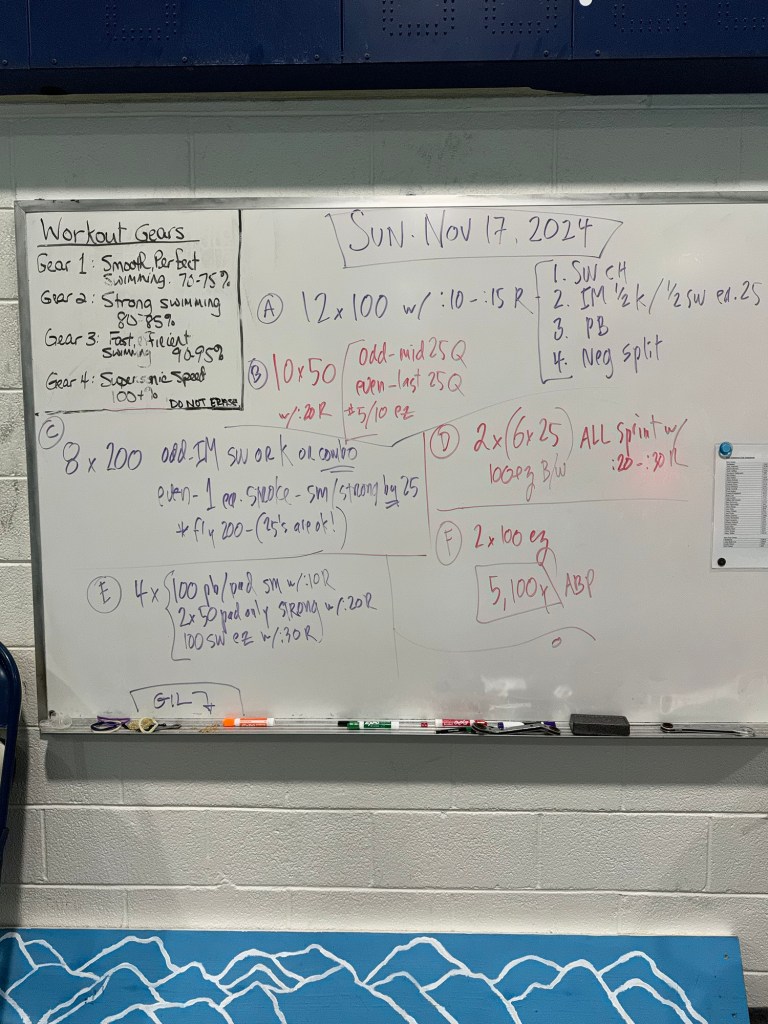 Workout Gears
Gear 1: Smooth, Perfect
Swimming. 70-75%
Gear 2: Strong swimming
80-85%
Gear 3: Fast, efficient
Swimming 90-95%
Gear 4: Supersonic Speed
100+%
DO NOT ERASE
SUN. NOV 17, 2024
(A) 12x100 w/ :10-:15 R
1. SW CH
2. IM 1/2 K / 1/2 SW ea. 25
3. PB
4. Neg split
(B) 10x50
w/ :20 R
odd-mid 25 Q
even-last 25 Q
* 5/10 ez
(C)
8 x 200 odd-IM sw or K or combo
even- 1 ea. stroke - sm/strong by 25
* fly 200 - (25's are ok!)
(D) 2x(6x25) ALL Sprint w/
100 ez B/W :20-:30 R
(E) 4x
100 pb/pad sm w/ :10R
2x50 pad only strong w/ :20R
100 sw ez w/ :30R
(F) 2x100 ez
5,100y ABP
GIL